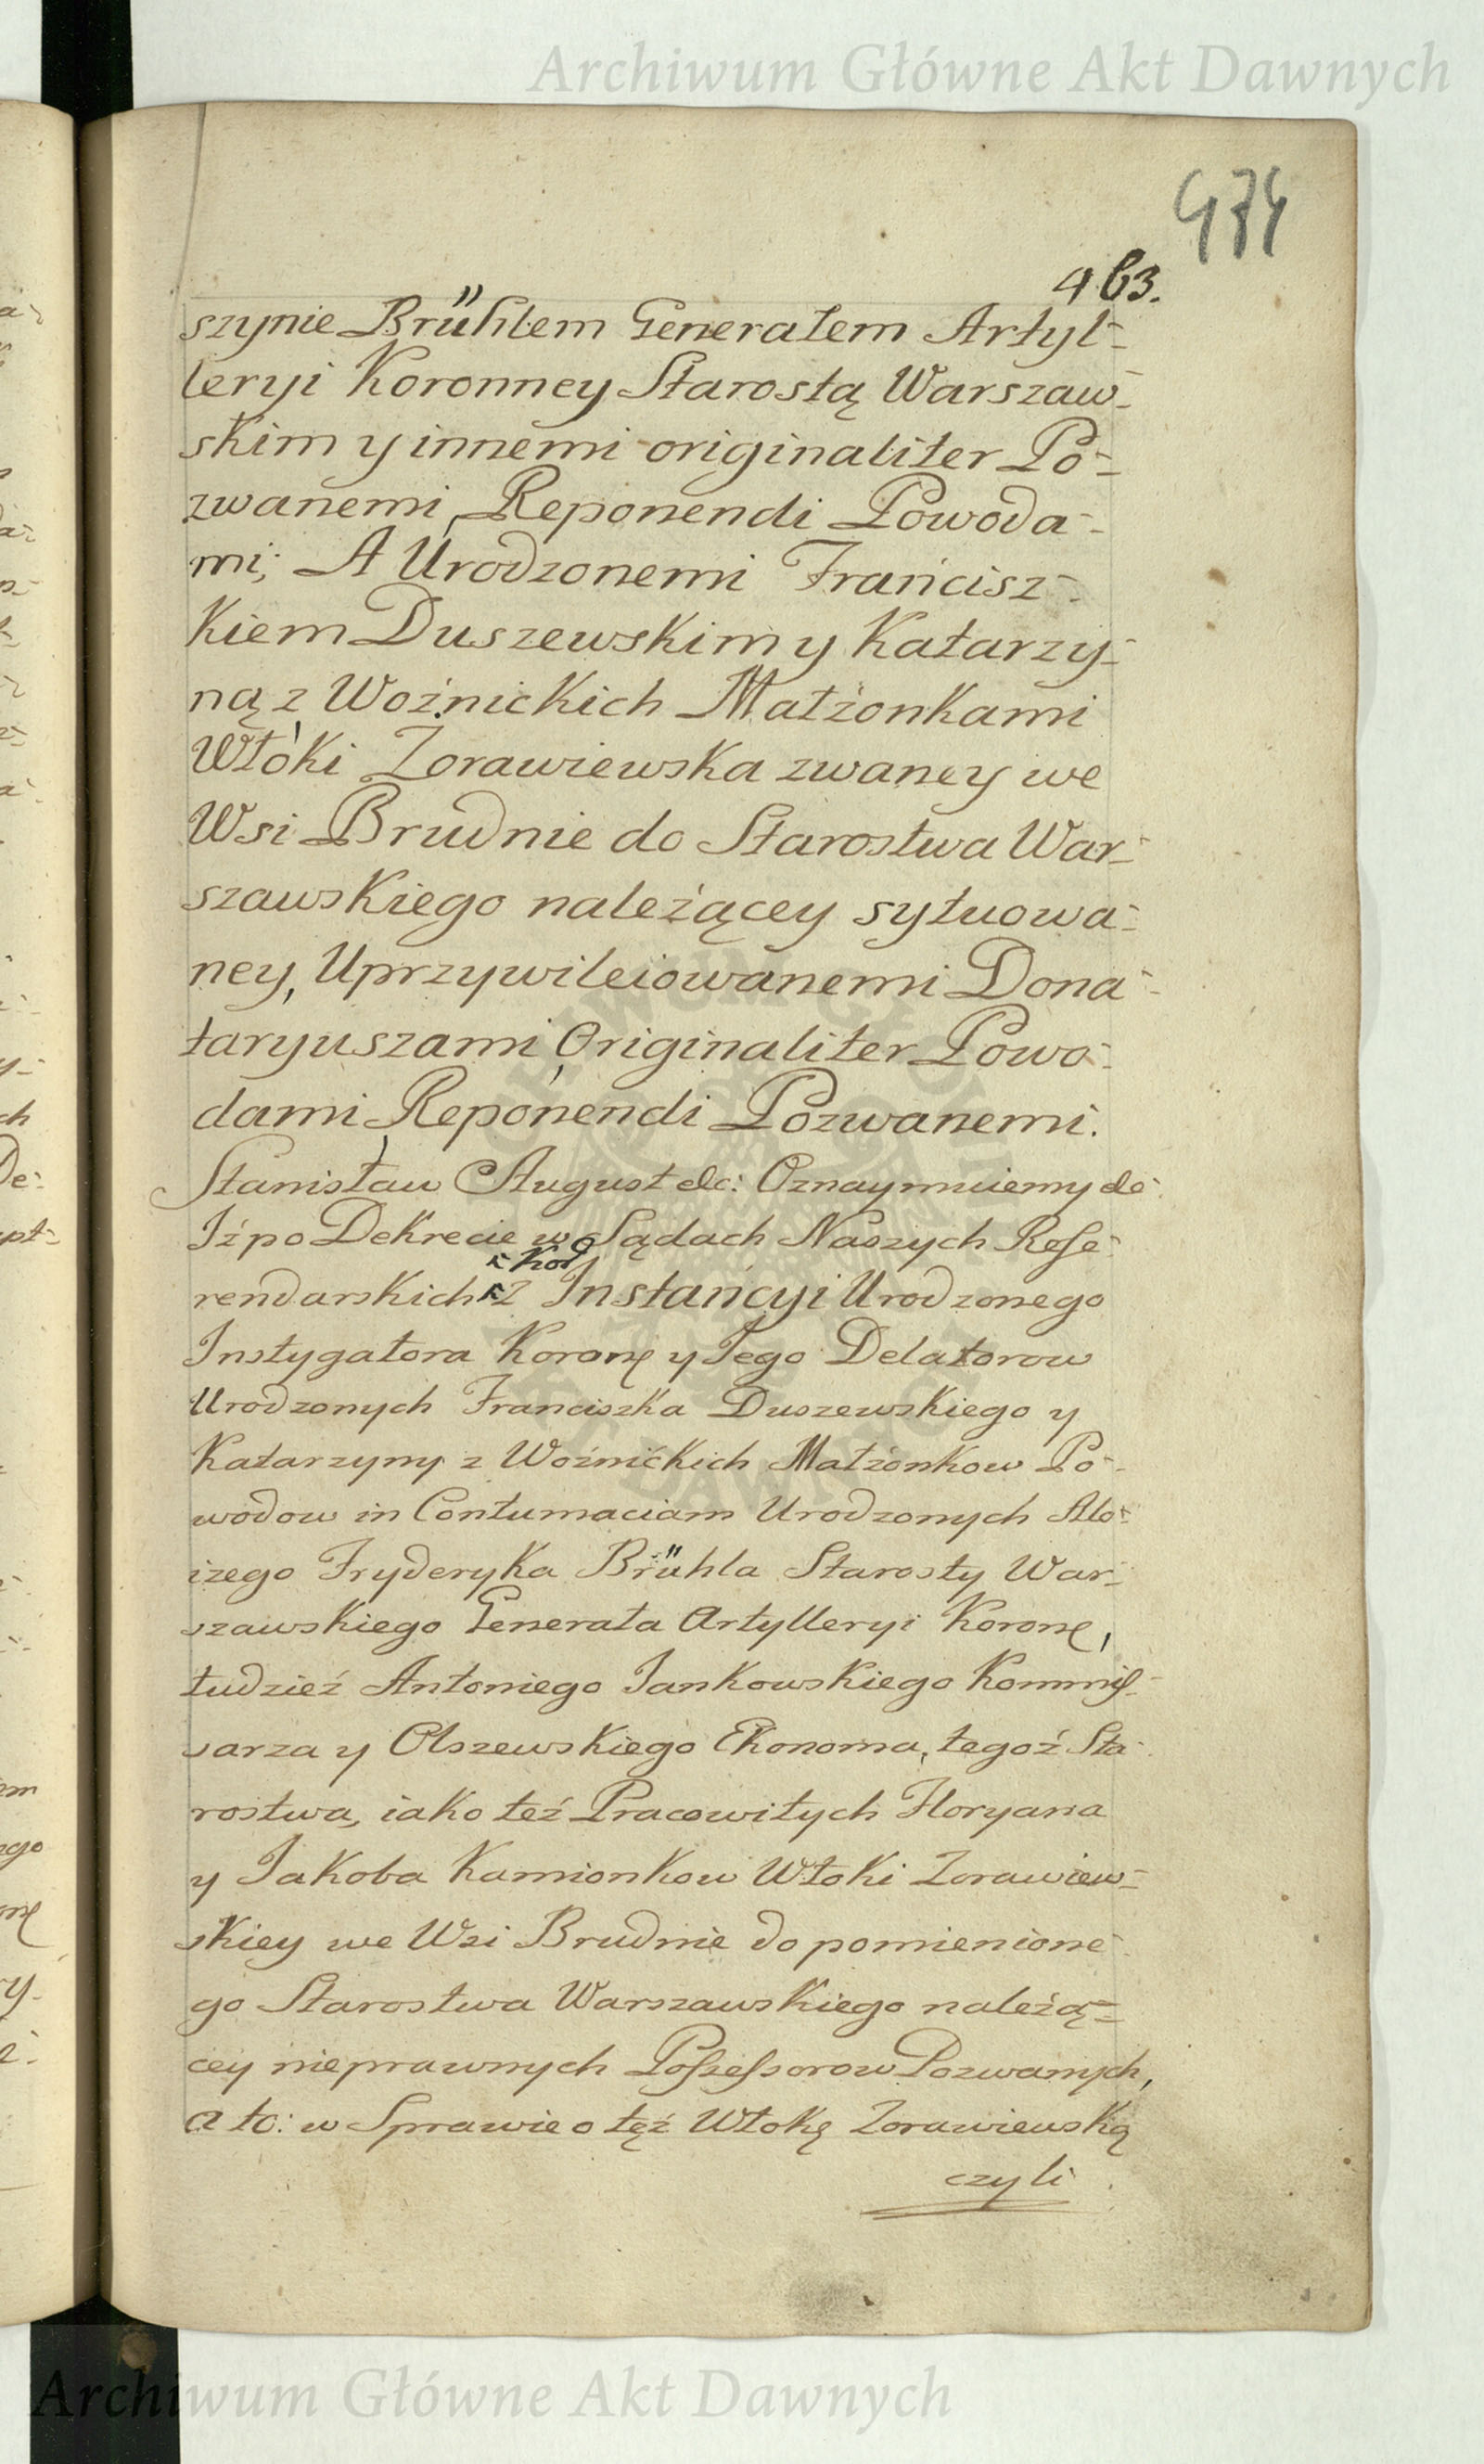 Archiwum Główne Akt Dawnych
474
463.
szynie Brühlem Generałem Artyl-
leryi Koronney Starostą Warszaw-
skim y innemi originaliter Po-
zwanemi, Reponendi Powoda-
mi; A Urodzonemi Francisz-
kiem Duszewskim y Katarzy-
ną z Woźnickich Małżonkami
Włóki Żorawiewska zwaney we
Wsi Brudnie do Starostwa War-
szawskiego należącey sytuowa-
ney, Uprzywileiowanemi Dona-
taryuszami, Originaliter Powo-
dami, Reponendi Pozwanemi.
Stanisław August etc: Oznaymuiemy etc
Iż po Dekrecie w Sądach Naszych Refe-
Kor
rendarskich z Instancyi Urodzonego
Instygatora Koronę y Jego Delatorow
Urodzonych Franciszka Duszewskiego y
Katarzyny z Woźnickich Małżonkow Po-
wodow in Contumaciam Urodzonych Alo-
izego Fryderyka Brühla Starosty War-
szawskiego Generała Artylleryi Koronę,
tudzież Antoniego Jankowskiego Kommis-
sarza y Olszewskiego Ekonoma, tegoż Sta-
rostwa, iako też Pracowitych Floryana
y Jakoba Kamionkow Włoki Zorawiew-
skiey we Wsi Brudnie do pomienione-
go Starostwa Warszawskiego należą-
cey nieprawnych Possessorow Pozwanych,
a to: w Sprawie o tęż Włokę Zorawiewską
czyli
Archiwum Główne Akt Dawnych